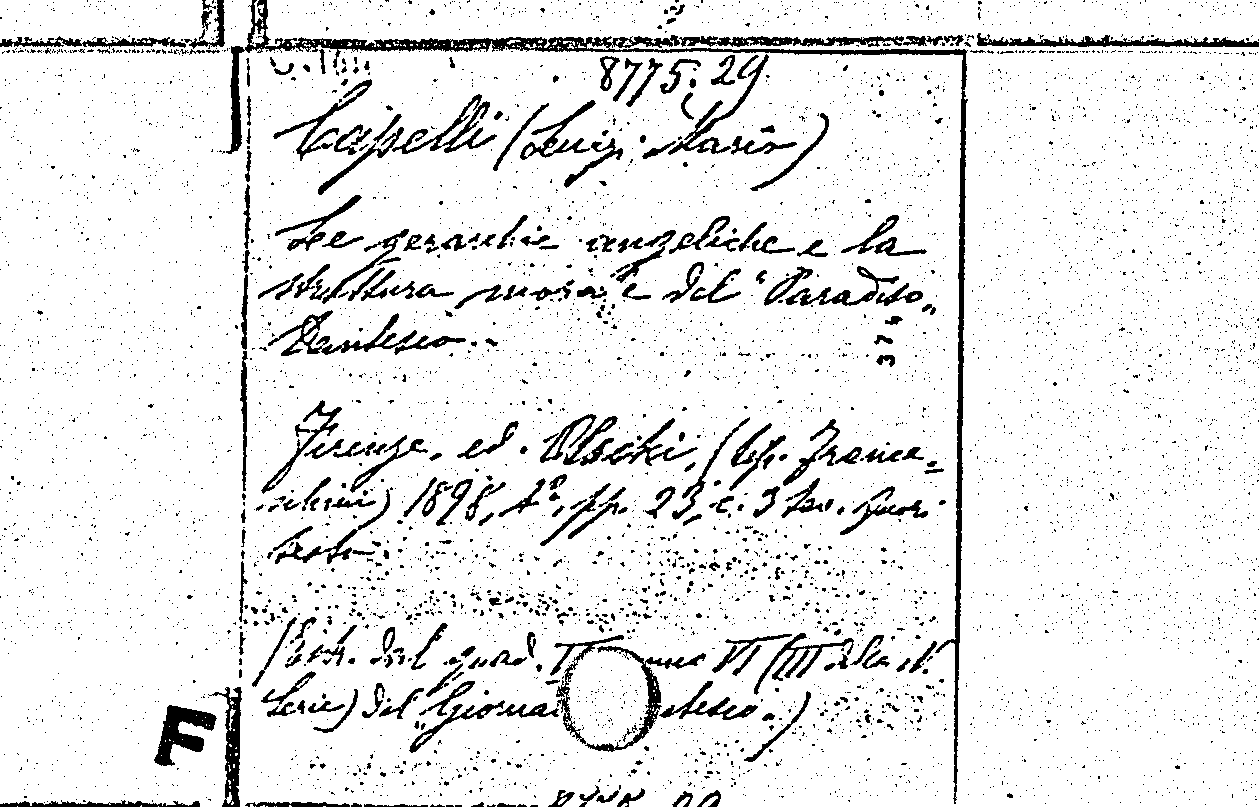 8775.29
Capelli (Luigi Maria)
Le gerarchie angeliche e la
struttura morale del "Paradiso„
Dantesco. -
374
Firenze, ed. Olschki, (tip. France=
schini) 1898, 4°, pp. 23, c. 3 tav. fuori
testo.
(Estr. dal quad. VI (III della n.
Serie) del "Giornal ntesco„.)
F